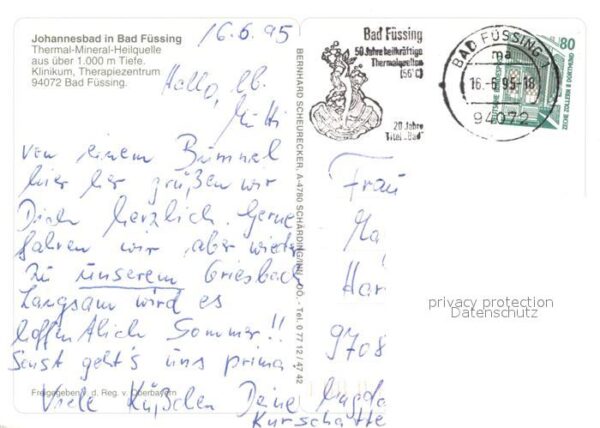 Johannesbad in Bad Füssing
Thermal-Mineral-Heilquelle
aus über 1.000 m Tiefe.
Klinikum, Therapiezentrum
94072 Bad Füssing.
16.6.95
Hallo, lb.
Mutti
von einem Bummel
hier her grüßen wir
Dich herzlich. Gerne
fahren wir aber wieder
zu unserem Griesbach
Langsam wird es
hoffentlich Sommer!!
Sonst geht's uns prima.
Viele Küßchen Deine Magda
Kurschatte
Freigegeben d. Reg. v. Oberbayern
BERNHARD SCHEURECKER, A-4780 SCHÄRDING/INN, OÖ. - Tel. 0 77 12 / 47 42
Bad Füssing
50 Jahre heilkräftige
Thermalquellen
(56°C)
20 Jahre
Titel „Bad"
BAD FÜSSING 1
ma
16.-6.95-18
94072
80
DEUTSCHE BUNDESPOST
ZECHE ZOLLERN II DORTMUND
Frau
Ma
Har
9708
privacy protection
Datenschutz